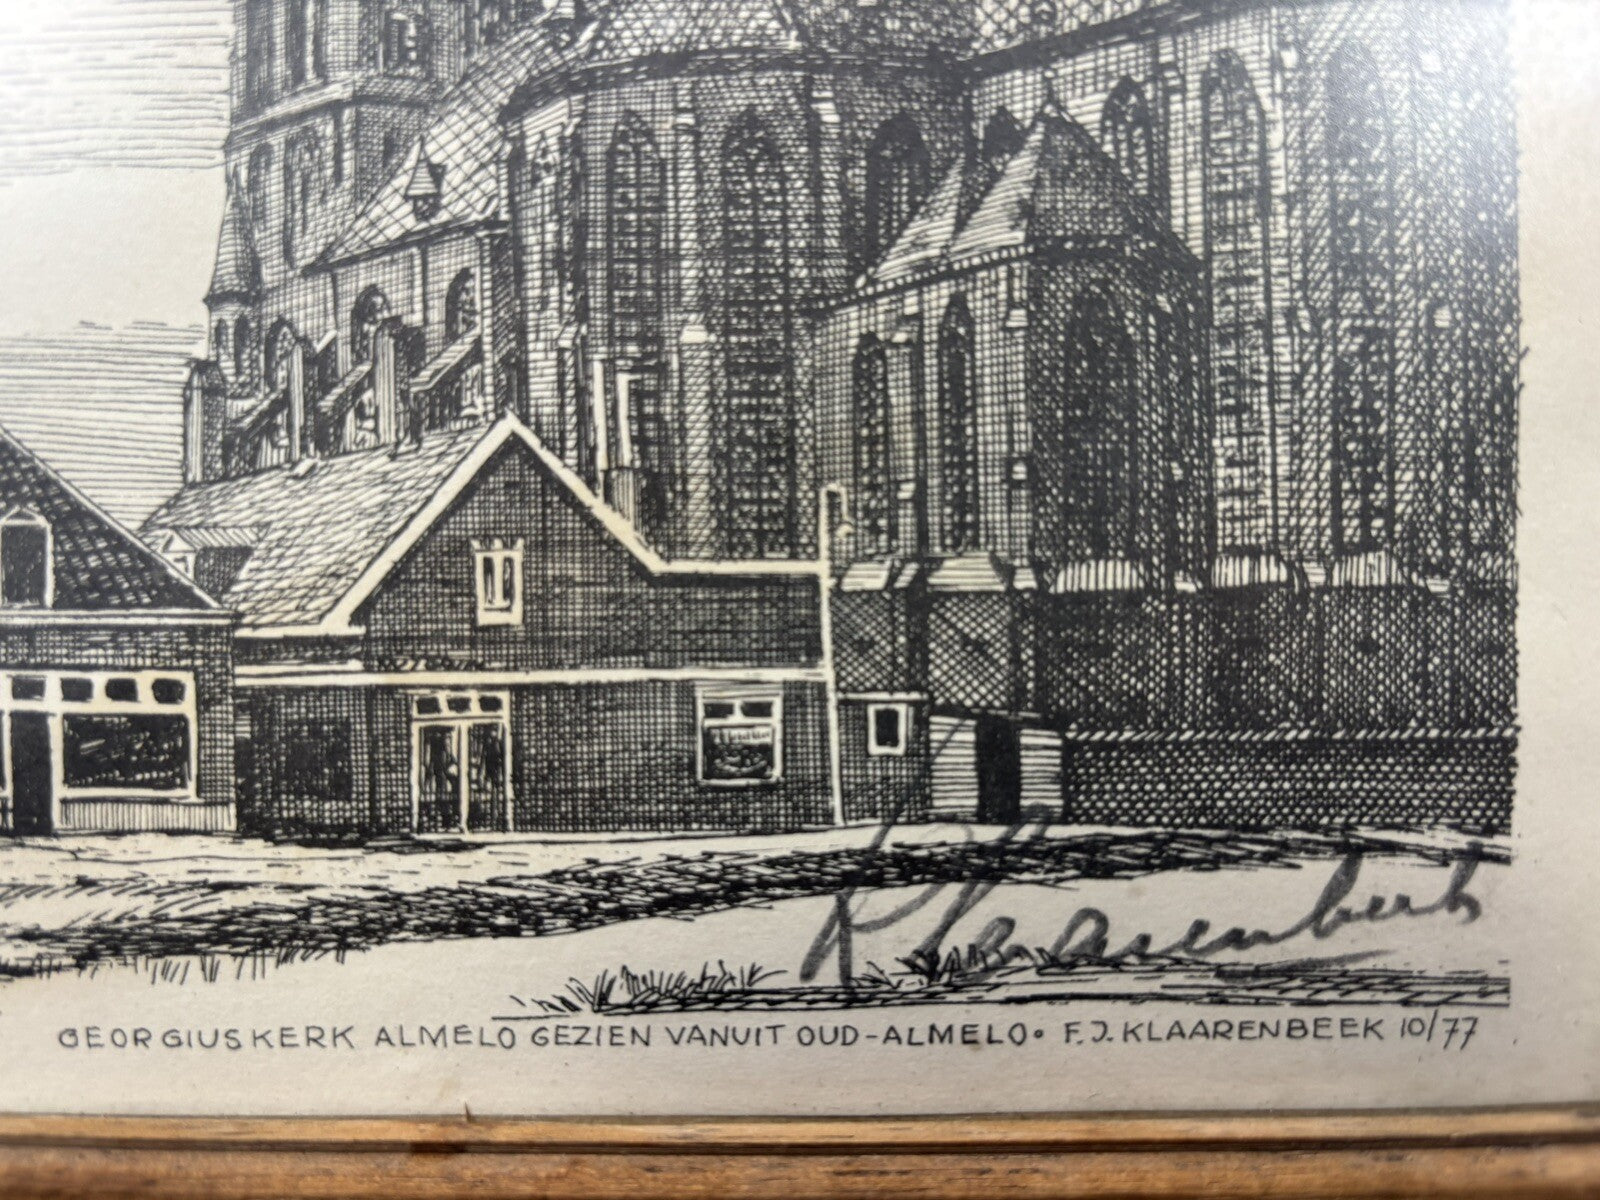 Klaarenbeek
GEORGIUSKERK ALMELO GEZIEN VANUIT OUD-ALMELO • F.J. KLAARENBEEK 10/77